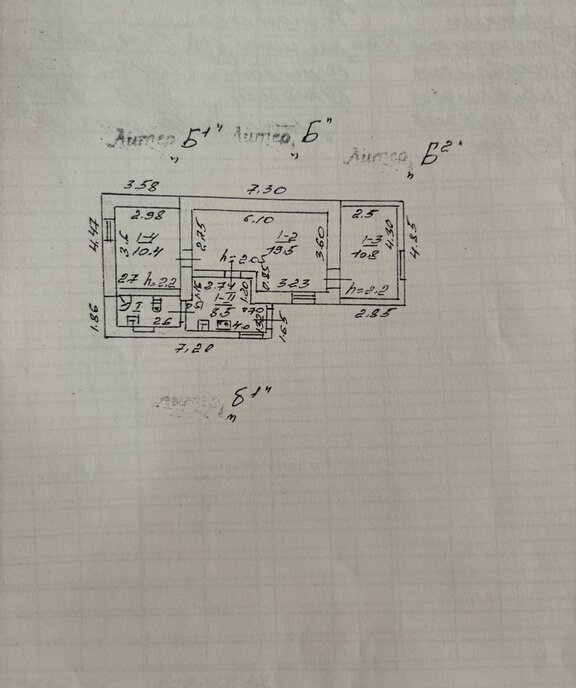 Литер „Б1"
Литер „Б"
Литер „Б2"
3.58
7.30
2.98
6.10
2.5
4.47
3.6
1-4
10.4
2.75
1-2
19.5
3.60
1-3
10.8
4.30
4.85
h=2.05
0.85
27
h=2.2
2.74
1.20
3.23
h=2.2
1-1
8.5
2.85
1.86
2.6
4.0
1.65
7.20
Литер „